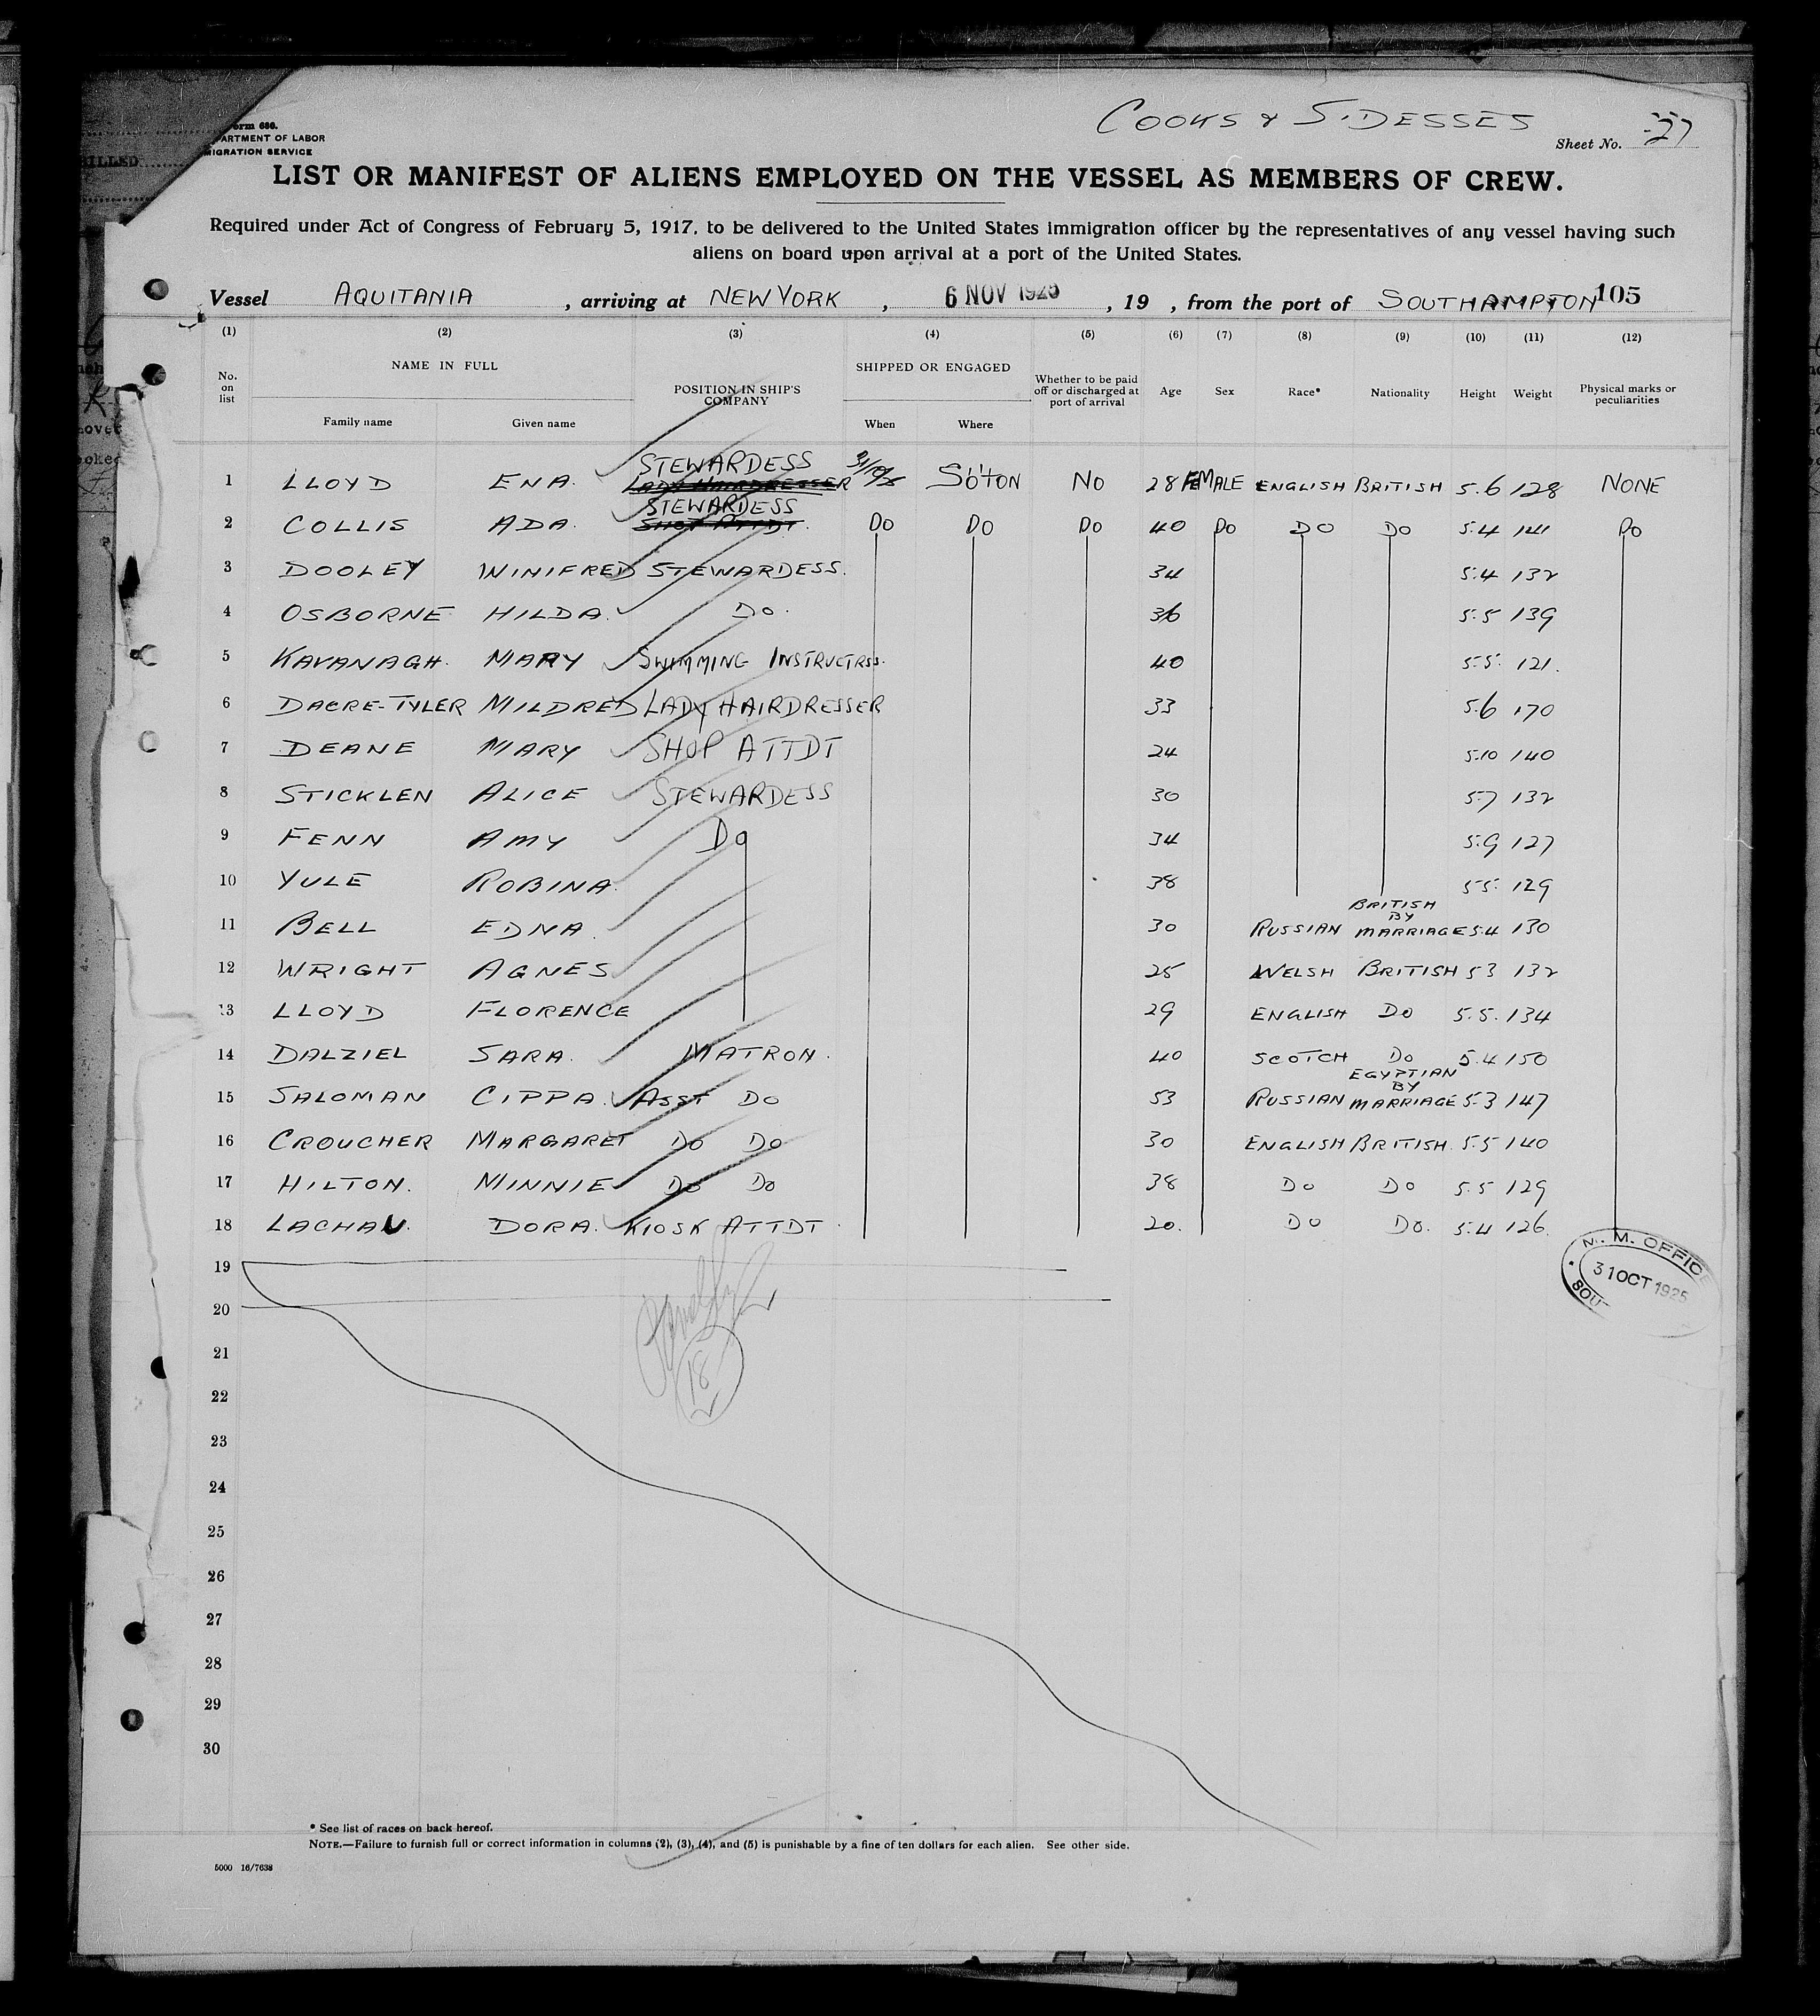 COOKS & S.DESSES
orm 686.
PARTMENT OF LABOR
MIGRATION SERVICE
Sheet No. 27
LIST OR MANIFEST OF ALIENS EMPLOYED ON THE VESSEL AS MEMBERS OF CREW.
Required under Act of Congress of February 5, 1917, to be delivered to the United States immigration officer by the representatives of any vessel having such
aliens on board upon arrival at a port of the United States.
Vessel AQUITANIA , arriving at NEW YORK , 6 NOV 1925 , 19 , from the port of SOUTHAMPTON 105
(1) (2) (3) (4) (5) (6) (7) (8) (9) (10) (11) (12)
No. on list NAME IN FULL POSITION IN SHIP'S COMPANY SHIPPED OR ENGAGED Whether to be paid off or discharged at port of arrival Age Sex Race* Nationality Height Weight Physical marks or peculiarities
Family name Given name When Where
STEWARDESS
1 LLOYD ENA. LADY HAIRDRESSER 31/10/25 So'ton No 28 FEMALE ENGLISH BRITISH 5.6 128 NONE
STEWARDESS
2 COLLIS ADA. SHOP ATTDT. Do Do Do 40 Do Do Do 5.4 141 Do
3 DOOLEY WINIFRED STEWARDESS. 34 5.4 132
4 OSBORNE HILDA. Do. 36 5.5 139
5 KAVANAGH. MARY SWIMMING INSTRUCTRSS. 40 5.5. 121.
6 DACRE-TYLER MILDRED LADY HAIRDRESSER 33 5.6 170
7 DEANE MARY SHOP ATTDT 24 5.10 140
8 STICKLEN ALICE STEWARDESS 30 5.7 132
9 FENN AMY Do 34 5.9 127
10 YULE ROBINA. 38 5.5. 129
BRITISH
BY
11 BELL EDNA. 30 RUSSIAN MARRIAGE 5.4 130
12 WRIGHT AGNES 25 WELSH BRITISH 5.3 132
13 LLOYD FLORENCE 29 ENGLISH Do 5.5. 134
14 DALZIEL SARA. MATRON. 40 SCOTCH Do 5.4 150
EGYPTIAN
BY
15 SALOMAN CIPPA. ASST Do 53 RUSSIAN MARRIAGE 5.3 147
16 CROUCHER MARGARET Do Do 30 ENGLISH BRITISH. 5.5 140
17 HILTON. MINNIE Do Do 38 Do Do 5.5 129
18 LACHAU. DORA. KIOSK ATTDT. 20. Do Do. 5.4 126.
19
M. M. OFFIC
31 OCT 1925
SOUT
20
21
18
22
23
24
25
26
27
28
29
30
* See list of races on back hereof.
NOTE.—Failure to furnish full or correct information in columns (2), (3), (4), and (5) is punishable by a fine of ten dollars for each alien. See other side.
5000 16/7638